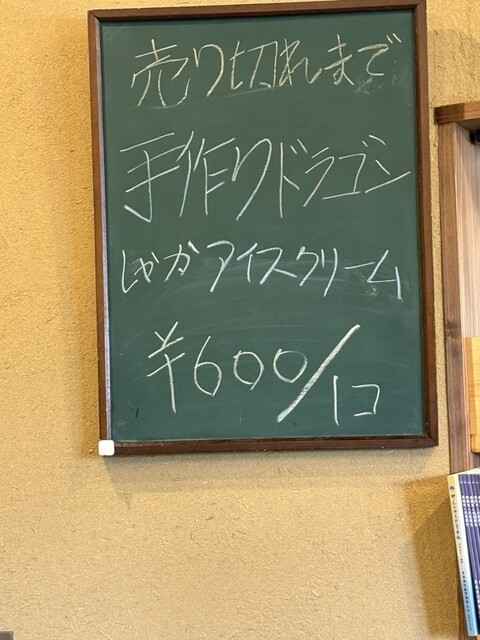 売り切れまで
手作りドラゴン
しゃかアイスクリーム
¥600/1コ